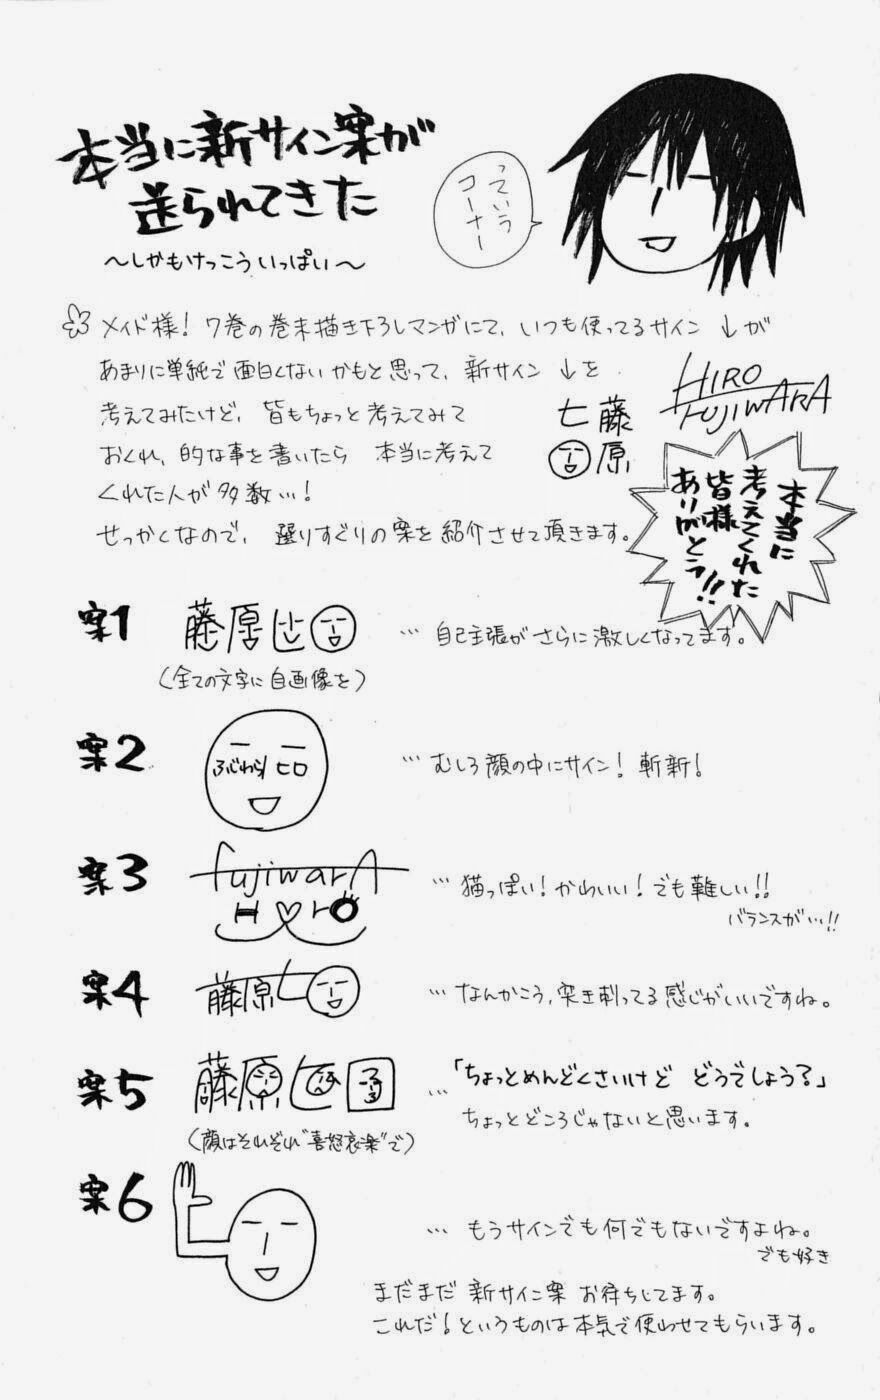 本当に新サイン案が
送られてきた
～しかもけっこういっぱい～
っていう
コーナー
メイド様！7巻の巻末描き下ろしマンガにて、いつも使ってるサイン↓が
あまりに単純で面白くないかもと思って、新サイン↓を
考えてみたけど、皆もちょっと考えてみて
おくれ、的な事を書いたら 本当に考えて
くれた人が多数…！
せっかくなので、選りすぐりの案を紹介させて頂きます。
HIRO
FUJIWARA
ヒ藤
原
本当に
考えてくれた
皆様
ありがとう!!
案1
藤原ヒ
…自己主張がさらに激しくなってます。
（全ての文字に自画像を）
案2
ふじわらヒロ
…むしろ顔の中にサイン！斬新！
案3
fujiwarA
H♡rO
…猫っぽい！かわいい！でも難しい!!
バランスが…!!
案4
藤原ヒ
…なんかこう、突き刺ってる感じがいいですね。
案5
藤原ヒロ
…「ちょっとめんどくさいけど どうでしょう？」
ちょっとどころじゃないと思います。
（顔はそれぞれ"喜怒哀楽"で）
案6
…もうサインでも何でもないですよね。
でも好き
まだまだ新サイン案お待ちしてます。
これだ！というものは本気で使わせてもらいます。